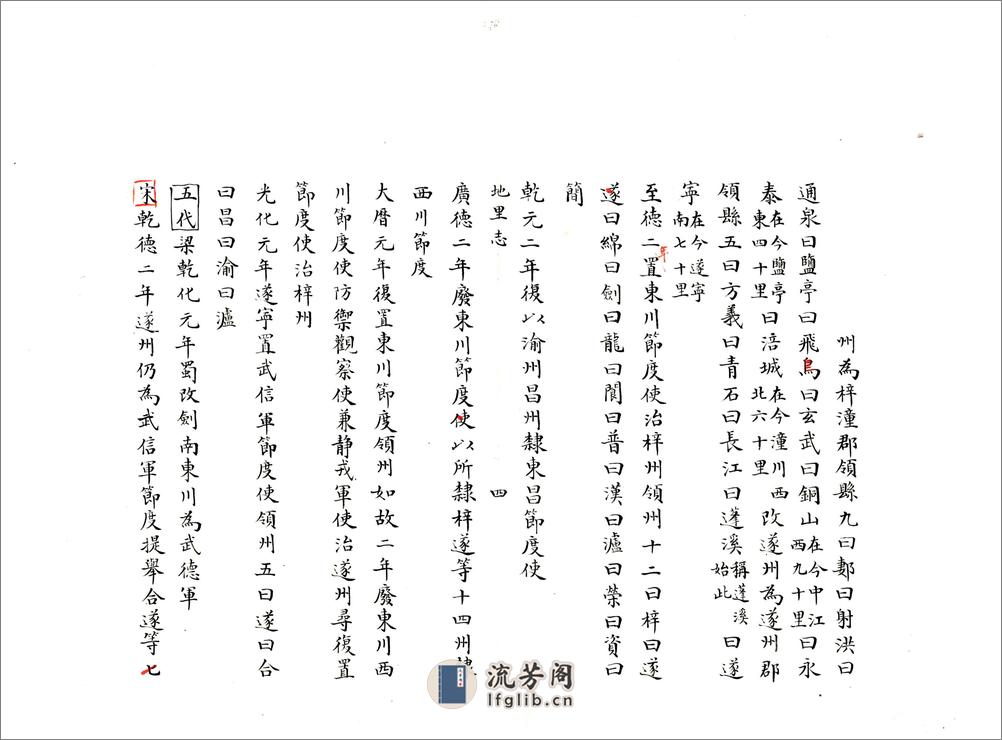 州為梓潼郡領縣九曰郪曰射洪曰
通泉曰鹽亭曰飛烏曰玄武曰銅山在今中江西九十里曰永
泰在今鹽亭東四十里曰涪城在今潼川西北六十里改遂州為遂州郡
領縣五曰方義曰青石曰長江曰蓬溪稱蓬溪始此曰遂
寧在今遂寧南七十里
至德二年置東川節度使治梓州領州十二曰梓曰遂
遂曰綿曰劍曰龍曰閬曰普曰漢曰瀘曰榮曰資曰
簡
乾元二年復以渝州昌州隸東昌節度使
地里志 四
廣德二年廢東川節度使以所隸梓遂等十四州隸
西川節度
大曆元年復置東川節度領州如故二年廢東川西
川節度使防禦觀察使兼静戎軍使治遂州尋復置
節度使治梓州
光化元年遂寧置武信軍節度使領州五曰遂曰合
曰昌曰渝曰瀘
五代梁乾化元年蜀改劍南東川為武德軍
宋乾德二年遂州仍為武信軍節度提舉合遂等七
流芳阁
lfglib.cn